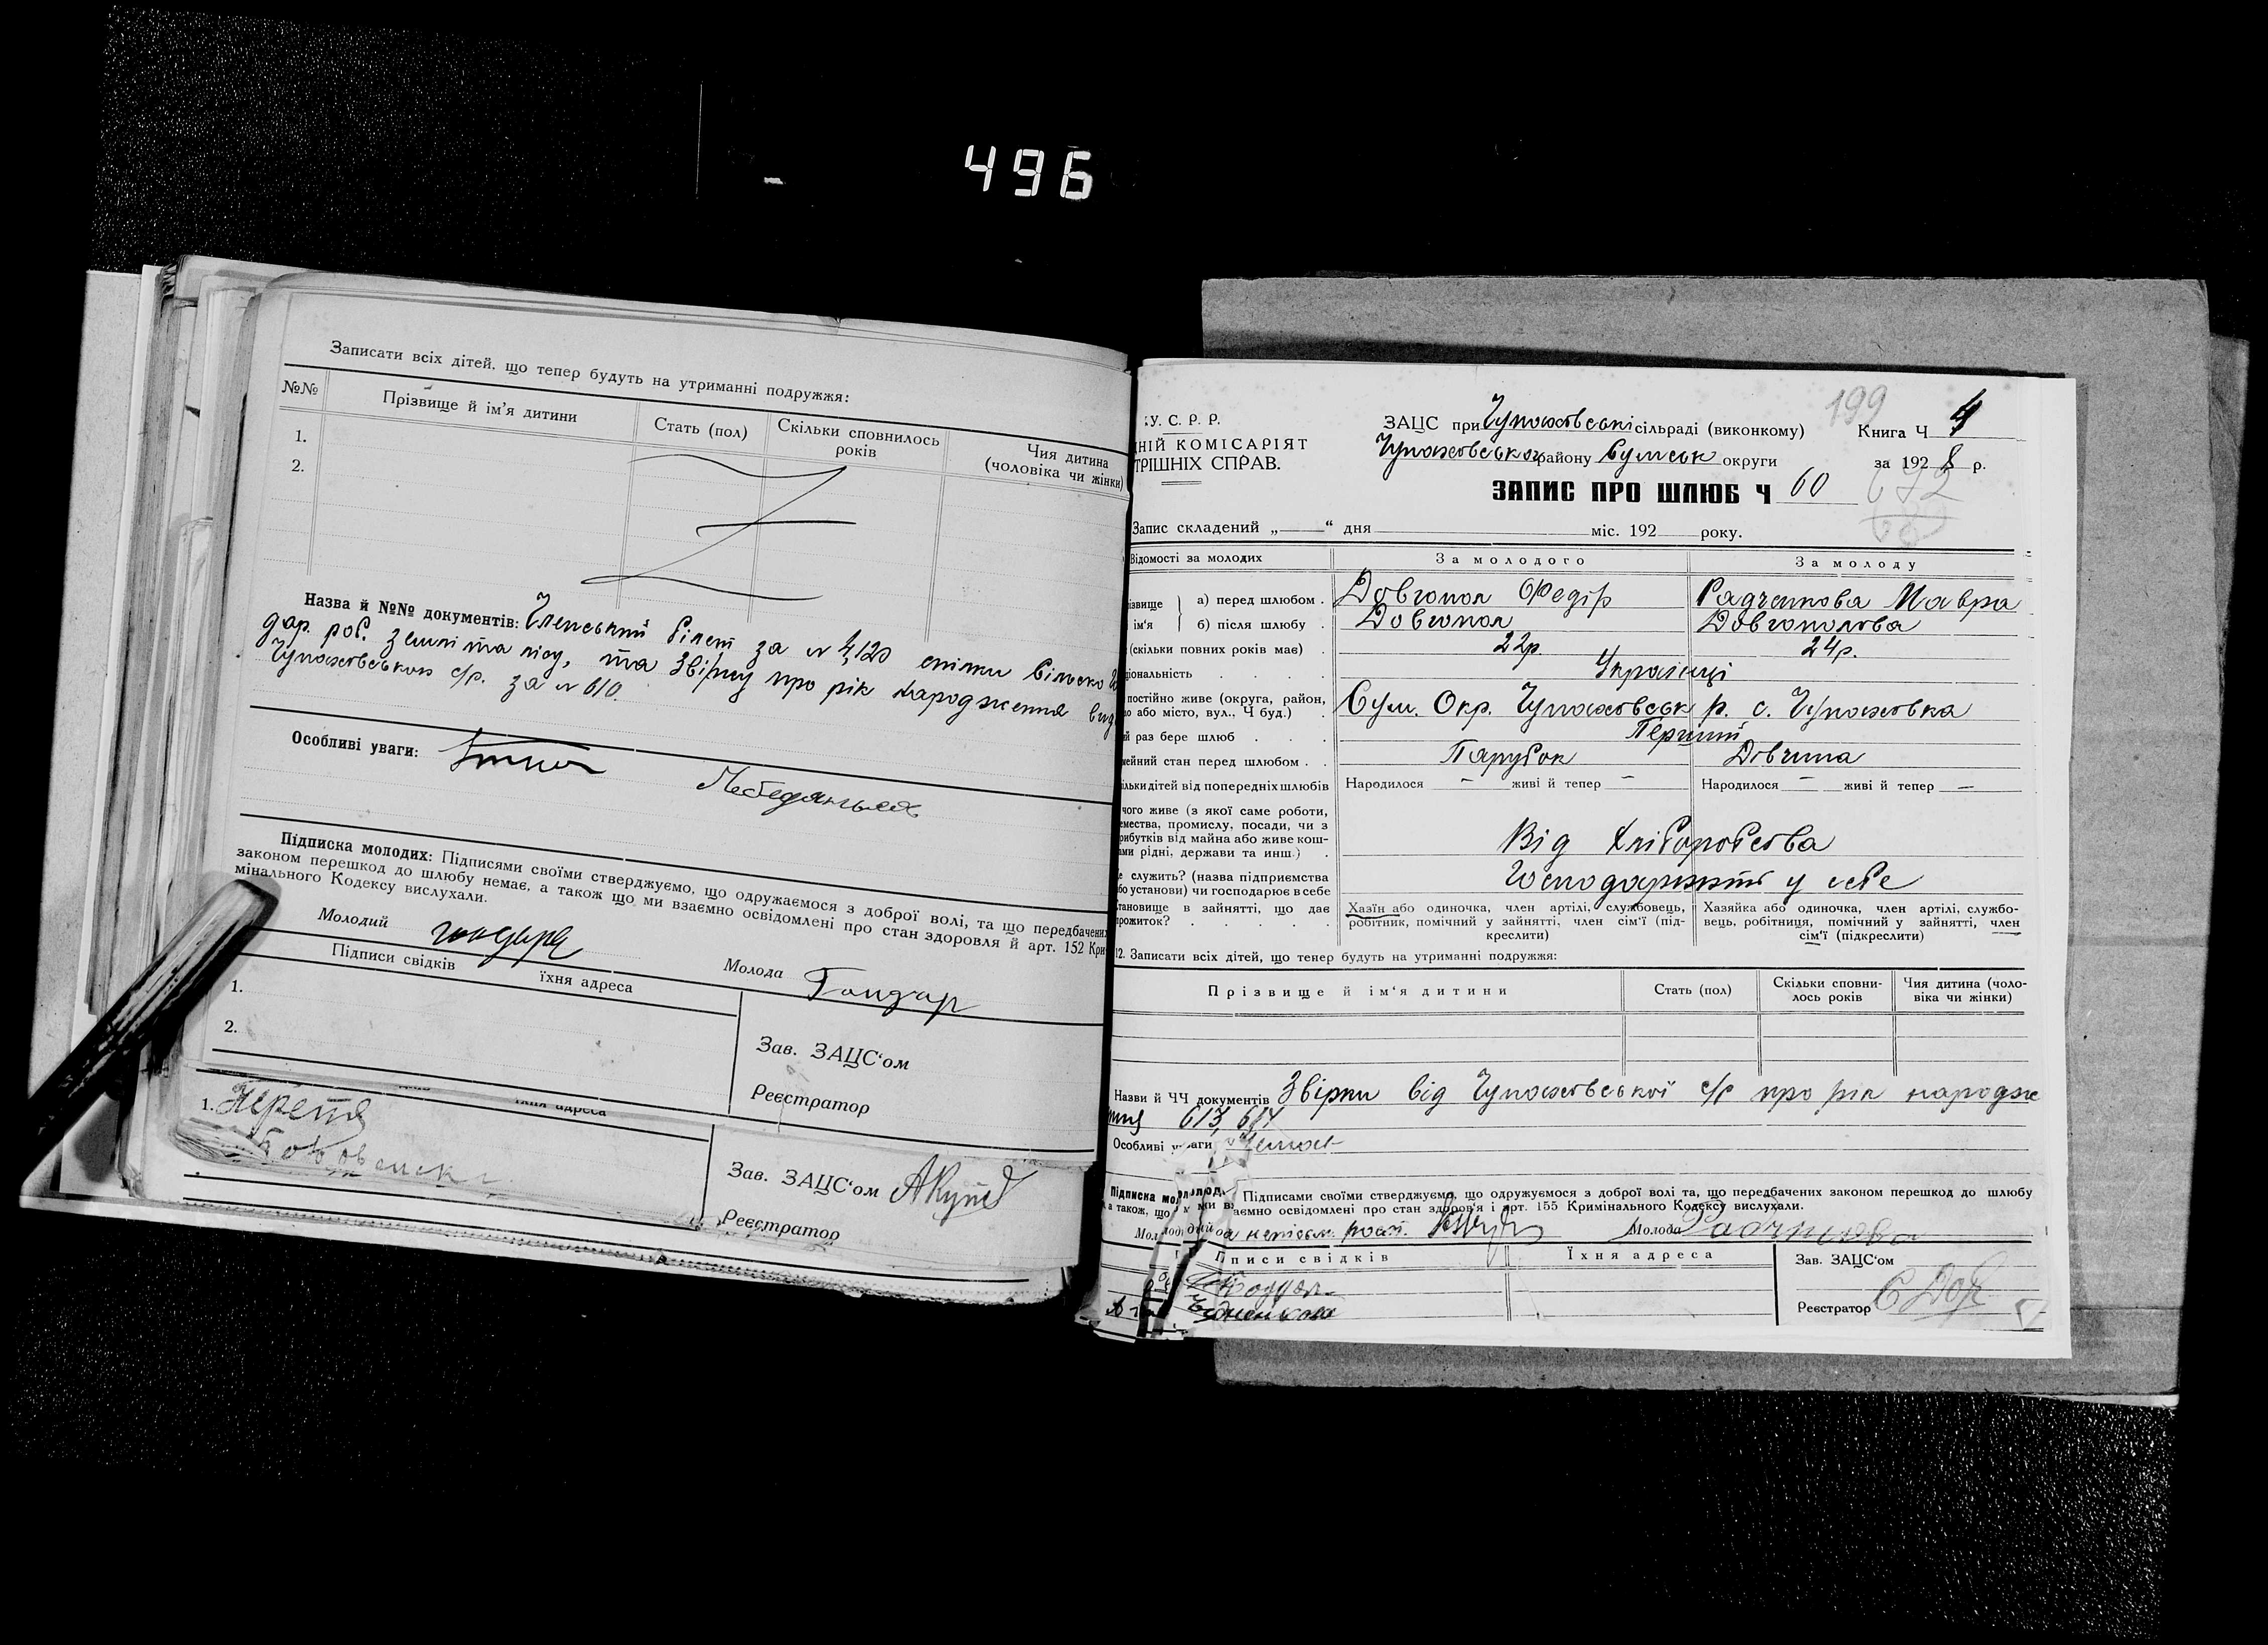 496
Записати всіх дітей, що тепер будуть на утриманні подружжя:
№№ Прізвище й ім'я дитини Стать (пол) Скільки сповнилось років Чия дитина (чоловіка чи жінки)
1.
2.
Назва й №№ документів: Членський білет за № 4,120 спілки сільсько го
дар. роб. землі та лісу, та Звірку про рік народження вид
Чупахівською с/р. за № 610.
Особливі уваги:
Підписка молодих: Підписями своїми стверджуємо, що одружаємося з доброї волі, та що передбачених
законом перешкод до шлюбу немає, а також що ми взаємно освідомлені про стан здоровля й арт. 152 Кри
мінального Кодексу вислухали.
Молодий Молода Гондар
Підписи свідків їхня адреса
1.
2.
Зав. ЗАЦС'ом
Реєстратор
їхня адреса
1.
Зав. ЗАЦС'ом
Реєстратор
У. С. Р. Р.
НІЙ КОМІСАРІЯТ
ТРІШНІХ СПРАВ.
199
ЗАЦС при Чупахівські сільраді (виконкому)
Чупахівського району Сумськ округи
Книга Ч 4
за 1928 р.
ЗАПИС ПРО ШЛЮБ Ч 60
672
Запис складений „ “ дня міс. 192 року.
Відомості за молодих За молодого За молоду
ізвище ім'я а) перед шлюбом . Довгопол Федір Радченкова Мавра
б) після шлюбу . Довгопол Довгополова
(скільки повних років має) . 22р. 24р.
ціональність . . . . Українці
постійно живе (округа, район, о або місто, вул., Ч буд.) . Сум. Окр. Чупахівськ р. с. Чупахівка
й раз бере шлюб . . . Перший
мейний стан перед шлюбом . . Парубок Дівчина
ільки дітей від попередніх шлюбів Народилося — живі й тепер — Народилося — живі й тепер —
чого живе (з якої саме роботи, емества, промислу, посади, чи з рибутків від майна або живе кош- ами рідні, держави та инш.) . Від Хліборобства
е служить? (назва підприємства бо установи) чи господарює в себе Господарюють у себе
тановище в зайнятті, що дає прожиток? . . . . . Хазїн або одиночка, член артілі, службовець, робітник, помічний у зайнятті, член сім'ї (під- креслити) Хазяйка або одиночка, член артілі, службо- вець, робітниця, помічний у зайнятті, член сім'ї (підкреслити)
12. Записати всіх дітей, що тепер будуть на утриманні подружжя:
Прізвище й ім'я дитини Стать (пол) Скільки сповни- лось років Чия дитина (чоло- віка чи жінки)
Назви й ЧЧ документів Звірки від Чупахівської с/р про рік народже
ння 613, 614
Особливі уваги Немає
Підписка молод. Підписами своїми стверджуємо, що одружуємося з доброї волі та, що передбачених законом перешкод до шлюбу
а також, що ми взаємно освідомлені про стан здоров'я і арт. 155 Кримінального Кодексу вислухали.
Молодий а неписьм. розп. Молода
Підписи свідків Їхня адреса
Зав. ЗАЦС'ом
Реєстратор